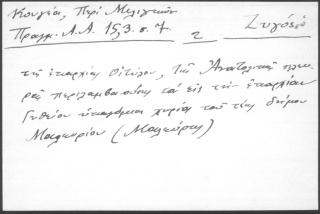 Κουγέα, Περὶ Μελιγκῶν
Πραγμ. Α.Α. 15,3. σ. 7. 2 Ζυγός
τῆς ἐπαρχίας Οἰτύλου, τῆς Ἀνατολικῆς πλευ-
ρᾶς περιλαμβανούσης τὰ εἰς τὴν ἐπαρχίαν
Γυθείου ὑπαγόμενα χωρία τοῦ τέως δήμου
Μαλευρίου (Μαλεύρη)